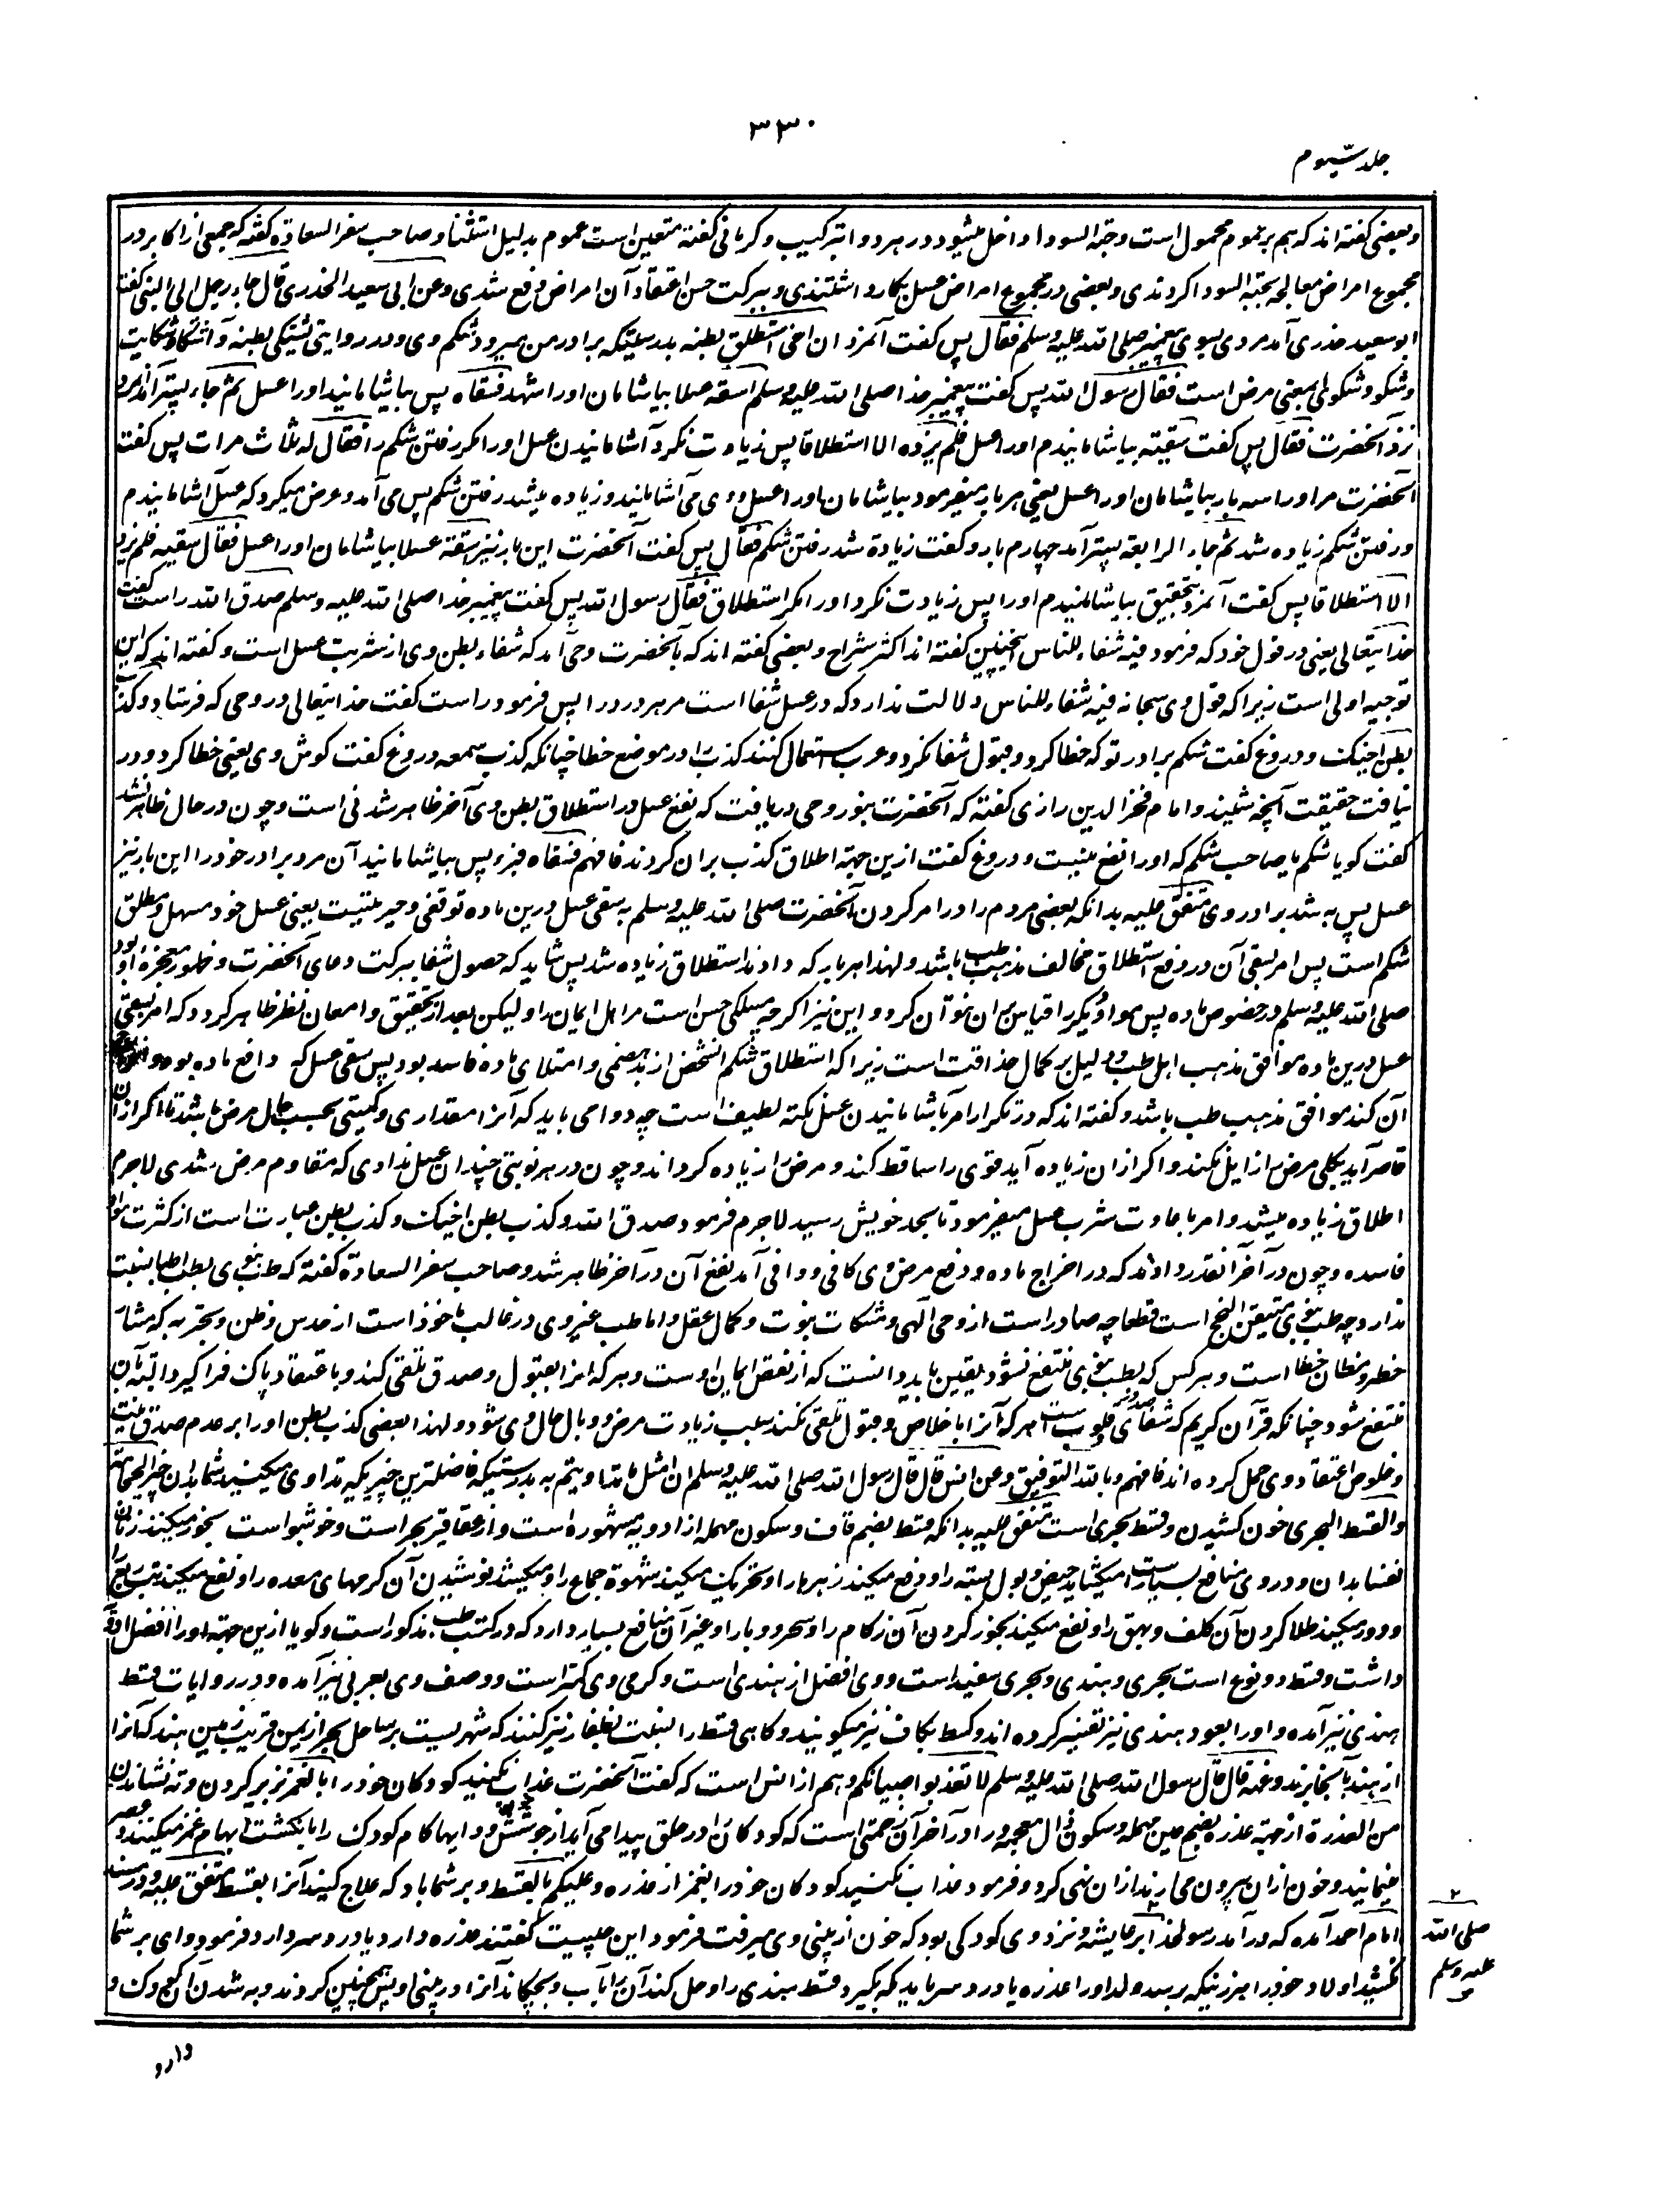 ۳۳۰
جلد سیوم
وبعضی گفته اند که هم بر عموم محمول است وحبة السودا داخل میشود در هر دوا بترکیب وکرمانی گفته متعین است عموم بدلیل استثنا وصاحب سفر السعادة گفته که جمعی از اکابر در
مجموع امراض معالجه بحبة السودا کردندی وبعضی در مجموع امراض عسل بکار داشتندی وببرکت حسن اعتقاد آن امراض دفع شدی وعن ابی سعید الخدری قال جاء رجل الی النبی گفت
ابو سعید خدری آمد مردی بسوی پیغمبر صلی الله علیه وسلم فقال پس گفت آنمرد ان اخی استطلق بطنه بدرستیکه برادر من میرود شکم وی ودر روایتی یشتکی بطنه واشتکا وشکایت
وشکو وشکوی بمعنی مرض است فقال رسول الله پس گفت پیغمبر خدا صلی الله علیه وسلم اسقه عسلا بیاشامان اورا شهد فسقاه پس بیاشامانید اورا عسل ثم جاء پستر آمد آنمرد
نزد آنحضرت فقال پس گفت سقیته بیاشامانیدم اورا عسل فلم یزده الا استطلاقا پس زیادت نکرد آشامانیدن عسل اورا مگر رفتن شکم را فقال له ثلاث مرات پس گفت
آنحضرت مر اورا سه بار بیاشامان اورا عسل یعنی هر بار میفرمود بیاشامان اورا عسل ووی می آشامانید وزیاده میشد رفتن شکم پس می آمد وعرض میکرد که عسل آشامانیدم
ورفتن شکم زیاده شد ثم جاء الرابعة پستر آمد چهارم بار وگفت زیادة شد رفتن شکم فقال پس گفت آنحضرت این بار نیز اسقه عسلا بیاشامان اورا عسل فقال سقیته فلم یزده
الا استطلاقا پس گفت آنمرد بتحقیق بیاشامانیدم اورا پس زیادت نکرد اورا مگر استطلاق فقال رسول الله پس گفت پیغمبر خدا صلی الله علیه وسلم صدق الله راست گفت
خدایتعالی یعنی در قول خود که فرمود فیه شفاء للناس اینچنین گفته اند اکثر شراح وبعضی گفته اند که بآنحضرت وحی آمد که شفاء بطن وی از شربت عسل است وگفته اند که این
توجیه اولی است زیرا که قول وی سبحانه فیه شفاء للناس دلالت ندارد که در عسل شفا است مر هر درد را پس فرمود راست گفت خدایتعالی در وحی که فرستاد وکذب
بطن اخیک ودروغ گفت شکم برادر تو که خطا کرد وقبول شفا نکرد وعرب استعمال کنند کذب را در موضع خطا چنانکه کذب سمعه دروغ گفت گوش وی یعنی خطا کرد ودر
نیافت حقیقت آنچه شنید وامام فخر الدین رازی گفته که آنحضرت بنور وحی دریافت که نفع عسل در استطلاق بطن وی آخر ظاهر شدنی است وچون در حال ظاهر نشد
گفت گویا شکم یا صاحب شکم که اورا نفع نیست ودروغ گفت ازین جهة اطلاق کذب بران کردند فافهم فسقاه فبرء پس بیاشامانید آن مرد برادر خود را این بار نیز
عسل پس به شد برادر وی متفق علیه بدانکه بعضی مردم را در امر کردن آنحضرت صلی الله علیه وسلم بسقی عسل درین ماده توقفی وحیرتیست یعنی عسل خود مسهل ومطلق
شکم است پس امر بسقی آن در رفع استطلاق مخالف مذهب طب باشد ولهذا هر بار که دادند استطلاق زیاده شد پس شاید که حصول شفا ببرکت دعای آنحضرت وظهور معجزه او بود
صلی الله علیه وسلم در خصوص ماده پس مواد دیگر را قیاس بران نتوان کرد واین نیز اگرچه مسلکی حسن است مر اهل ایمان را ولیکن بعد از تحقیق وامعان نظر ظاهر گردد که امر بسقی
عسل درین ماده موافق مذهب اهل طب ودلیل بر کمال حذاقت است زیرا که استطلاق شکم آنشخص از بدهضمی وامتلای ماده فاسد بود پس سقی عسل که دافع ماده بود
آن کند موافق مذهب طب باشد وگفته اند که در تکرار امر بآشامانیدن عسل نکته لطیف است چه دوا می باید که آنرا مقداری وکمیتی بحسب حال مرض باشد تا اگر از آن
قاصر آید بکلی مرض را زایل نکند واگر ازان زیاده آید قوی را ساقط کند ومرض را زیاده گرداند وچون در هر نوبتی چندان عسل ندادی که مقاوم مرض شدی لاجرم
اطلاق زیاده میشد وامر باعادت شرب عسل میفرمود تا بحد خویش رسید لاجرم فرمود صدق الله وکذب بطن اخیک وکذب بطن عبارت است از کثرت مواد
فاسده وچون در آخر آنقدر دادند که در اخراج ماده ودفع مرض وی کافی ووافی آمد نفع آن در آخر ظاهر شد وصاحب سفر السعادة گفته که طب نبوی بطب اطبا نسبت
ندارد چه طب نبوی متیقن النجح است قطعا چه صادر است از وحی الهی ومشکات نبوت وکمال عقل واما طب غیر وی در غالب ماخوذ است از حدس وظن وتجربه که مثار
خطر ومظان خطا است وهر کس که بطب نبوی منتفع نشود یقین باید دانست که از نقص ایمان اوست وهر که انرا بقبول وصدق تلقی کند وباعتقاد پاک فرا گیرد البته بآن
منتفع شود چنانکه قرآن کریم که شفای صدور وقلوب ست هر که آنرا باخلاص وقبول تلقی نکند سبب زیادت مرض ووبال حال وی شود ولهذا بعضی کذب بطن اورا بر عدم صدق نیت
وخلوص اعتقاد وی حمل کرده اند فافهم وبالله التوفیق وعن انس قال قال رسول الله صلی الله علیه وسلم ان امثل ما تداویتم به بدرستیکه فاضلترین چیزیکه تداوی میکنید شما بدان چیز الحجامة
والقسط البحری خون کشیدن وقسط بحری است متفق علیه بدانکه قسط بضم قاف وسکون مهمله از ادویه مشهوره است واز عقاقیر بحر است وخوشبو است بخور میکنند زنان
نفسا بدان ودر وی منافع بسیار است میکشاید حیض وبول بسته را ودفع میکند زهرها را وتحریک میکند شهوة جماع را ومیکشد نوشیدن آن کرمهای معده را ونفع میکند تب ربع را
ودور میکند طلا کردن آن کلف وبهق را ونفع میکند بخور کردن آن زکام را وسحر ووبا را وغیر آن منافع بسیار دارد که در کتب طب مذکور است وگویا ازین جهة اورا افضل ادویه
داشت وقسط دو نوع است بحری وهندی وبحری سفید است ووی افضل از هندی است وگرمی وی کمتر است ووصف وی بعربی نیز آمده ودر روایات قسط
هندی نیز آمده واورا بعود هندی نیز تفسیر کرده اند وکسط بکاف نیز میگویند وکاهی قسط را نسبت بظفار نیز کنند که شهریست بر ساحل بحر از یمن قریب زمین هند که آنرا
از هند بآنجا برند وعنه قال قال رسول الله صلی الله علیه وسلم لا تعذبوا صبیانکم وهم از انس است که گفت آنحضرت عذاب نکنید کودکان خود را بالغمز بزیر کردن وته نشاندن
من العذرة از جهة عذره بضم عین مهمله وسکون ذال معجمه ورا در آخر آن زحمتی است که کودکان را در حلق پیدا می آید از جوشش خون ودایها کام کودک را بانگشت ابهام غمز میکنند وعصر
مینمایند وخون ازان بیرون می آرند ازان نهی کرد وفرمود عذاب نکنید کودکان خود را بغمز از عذره وعلیکم بالقسط وبر شما باد که علاج کنید آنرا بقسط متفق علیه ودر مسند
امام احمد آمده که در آمد رسولخدا بر عایشه ونزد وی کودکی بود که خون از بینی وی میرفت فرمود این چیست گفتند عذره دارد یا درد سر دارد فرمود وای بر شما
نکشید اولاد خود را هر زنیکه برسد ولد اورا عذره یا درد سر باید که بگیرد قسط هندی را وحل کند آن را بآب وبچکاند آنرا در بینی او پس همچنین کردند وبه شد آن کودک و
۲
صلی الله
علیه وسلم
دارد